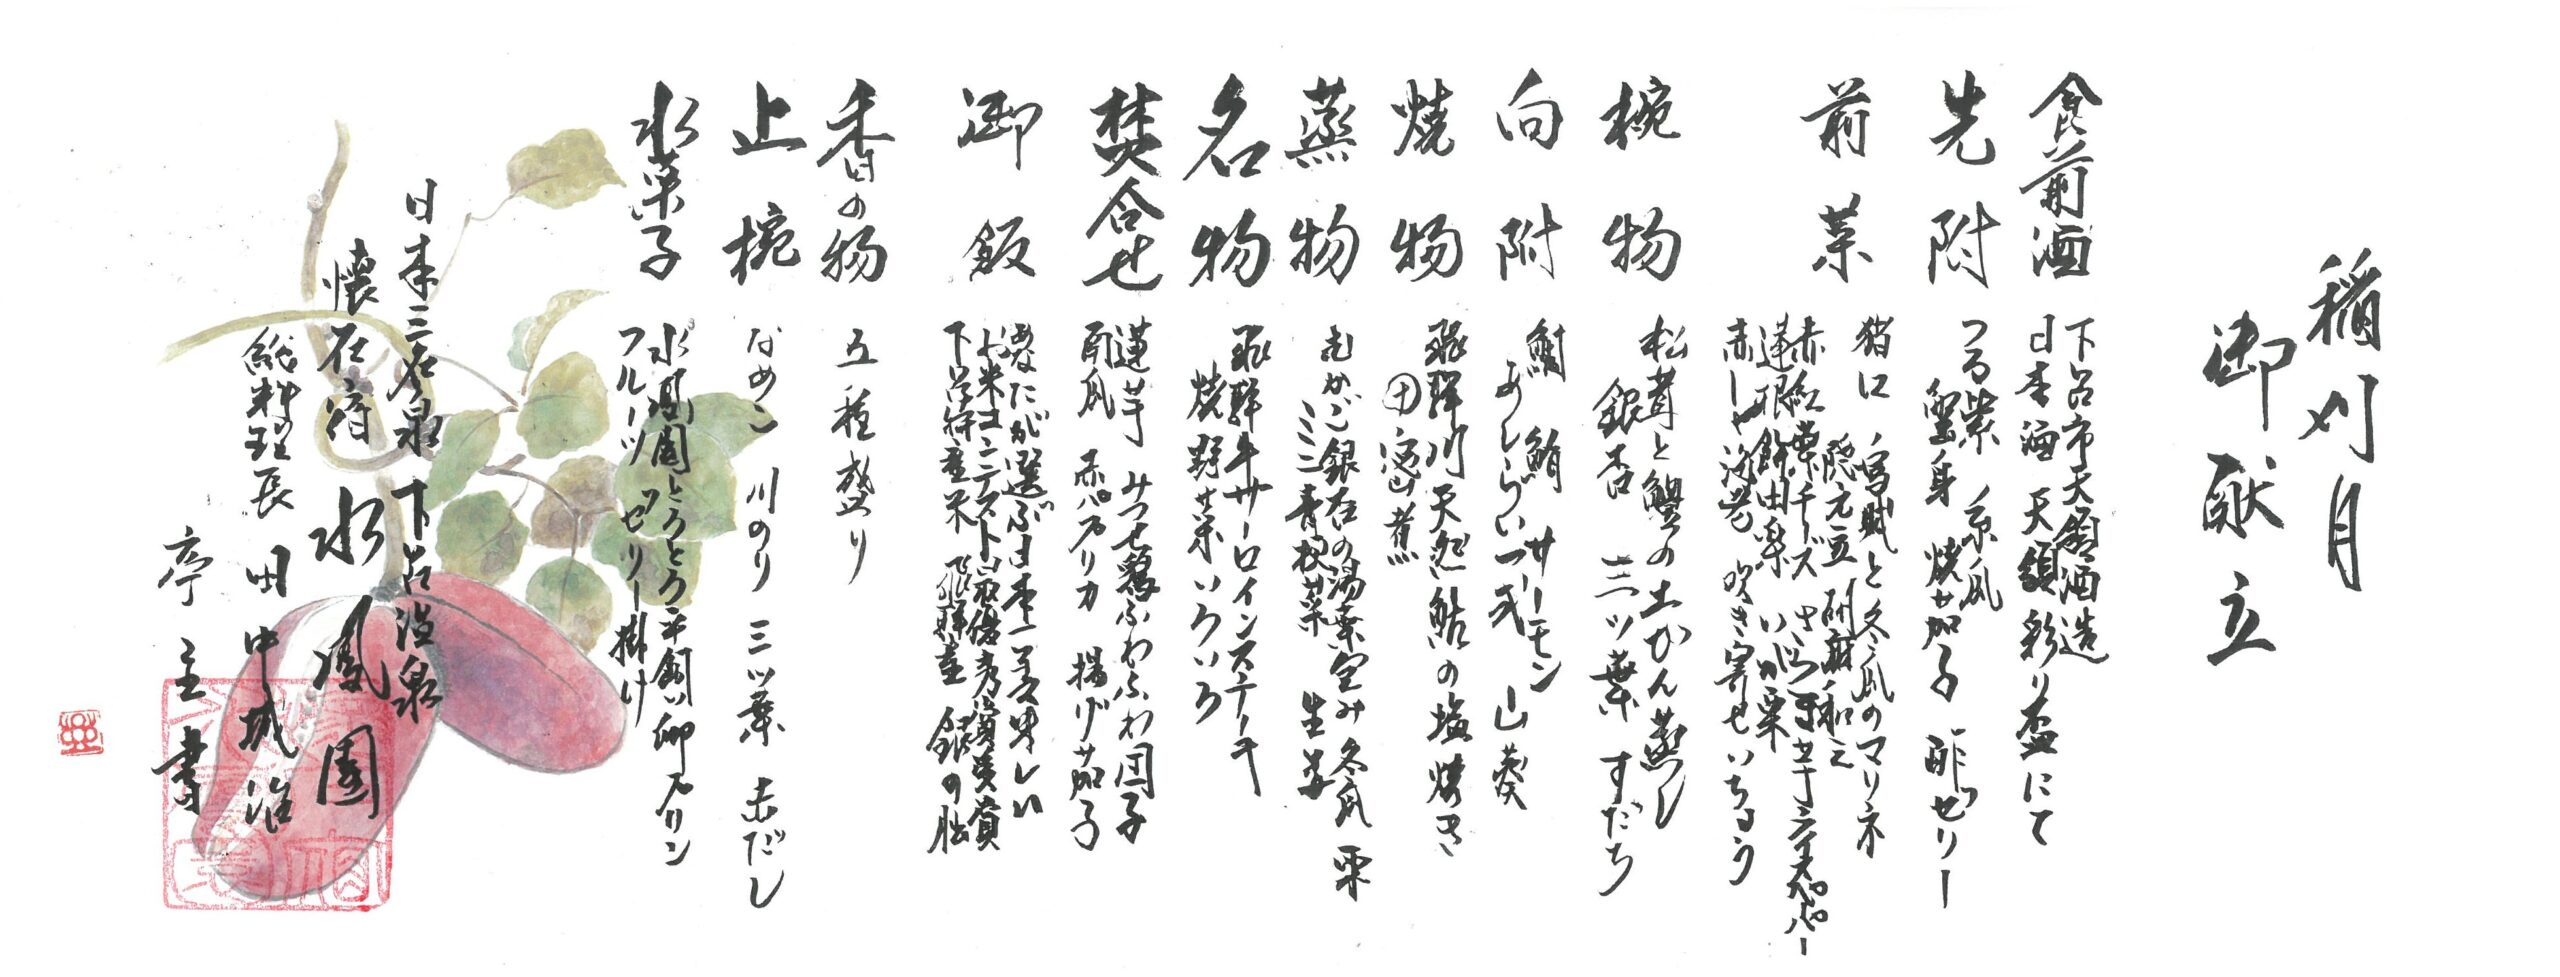 稲刈月
御献立
食前酒
下呂市天領酒造
日本酒 天領 彩り盃にて
先附
つる紫 糸瓜
蟹身 焼茄子 酢ゼリー
前菜
猪口 冬瓜のマリネ
隠元豆 胡麻和え
赤紅葉チーズ
蓮根餅田楽 いが栗
赤しゃ海老 吹き寄せいちょう
椀物
松茸と鱧の土びん蒸し
銀杏 三ツ葉 すだち
向附
鮪 サーモン 山葵
あしらい一式
焼物
飛騨川天然鮎の塩焼き
蒸物
むかご 銀杏の湯葉包み 冬瓜 栗
青梗菜 生姜
名物
飛騨牛サーロインステーキ
焼野菜いろいろ
焚合せ
蓮芋 みつせ鶏ふわふわ団子
南瓜 赤パプリカ 揚げ茄子
御飯
あなたが選ぶ日本一美味しい
お米コンテスト最優秀演賞
下呂特産米 飛騨産 銀の朏
香の物
五種盛り
止椀
なめこ 川のり 三ツ葉 赤だし
水菓子
水鳳園とろとろ平飼い卵プリン
フルーツ ゼリー掛け
日本三名泉 下呂温泉
懐石宿 水鳳園
総料理長 田中城治
亭主書